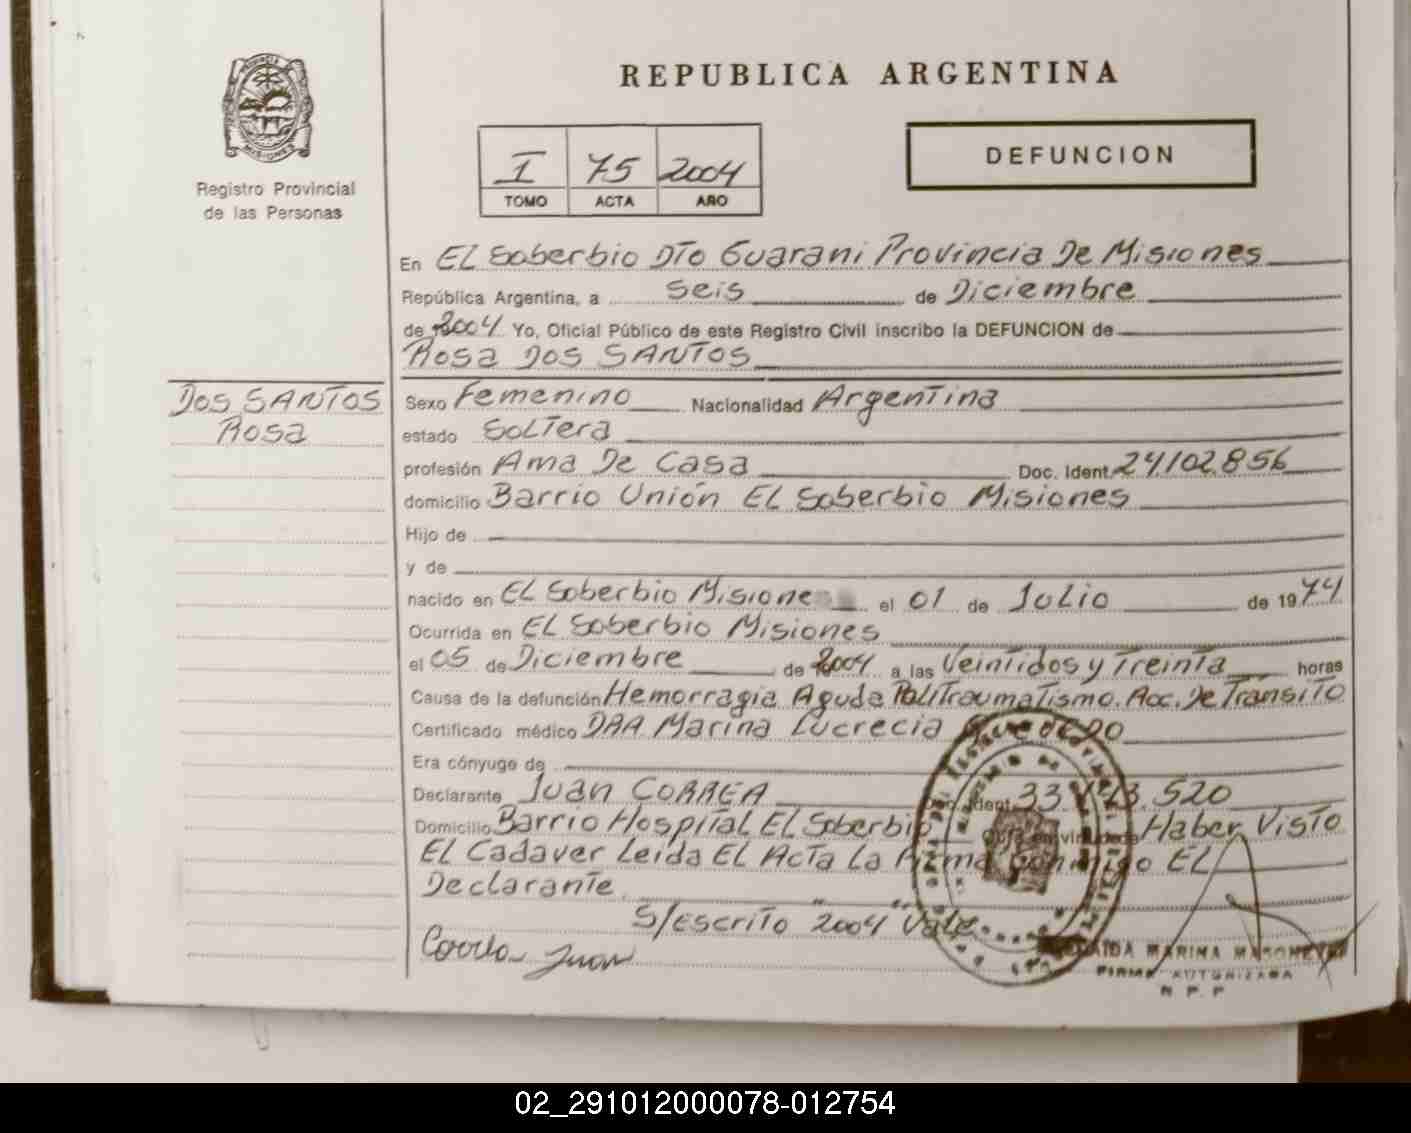 REPUBLICA ARGENTINA
PROVINCIA DE MISIONES
Registro Provincial
de las Personas
I 75 2004
TOMO ACTA AÑO
DEFUNCION
En EL Soberbio DTo Guarani Provincia De Misiones
República Argentina, a seis de Diciembre
de 2004 Yo, Oficial Público de este Registro Civil inscribo la DEFUNCION de
Rosa DOS SANTOS
DOS SANTOS
Rosa
Sexo Femenino Nacionalidad Argentina
estado SolTera
profesión Ama De Casa Doc. Ident. 24.102.856
domicilio Barrio Unión EL Soberbio Misiones
Hijo de
y de
nacido en EL Soberbio Misiones el 01 de Julio de 1974
Ocurrida en EL Soberbio Misiones
el 05 de Diciembre de 2004 a las VeinTidos y TreinTa horas
Causa de la defunción Hemorragia Aguda PoliTraumaTismo. Acc. De TránsiTo
Certificado médico DRA Marina Lucrecia
Era cónyuge de
Declarante Juan CORREA Doc. Ident. 33 520
Domicilio Barrio HospiTal EL Soberbio Quien en virtud de Haber VisTo
EL Cadaver Leida EL AcTa La Firma Conmigo EL
DeclaranTe
S/EscriTo "2004" Vale.
Correa Juan
MARINA
FIRMA AUTORIZADA
R P P
02_291012000078-012754